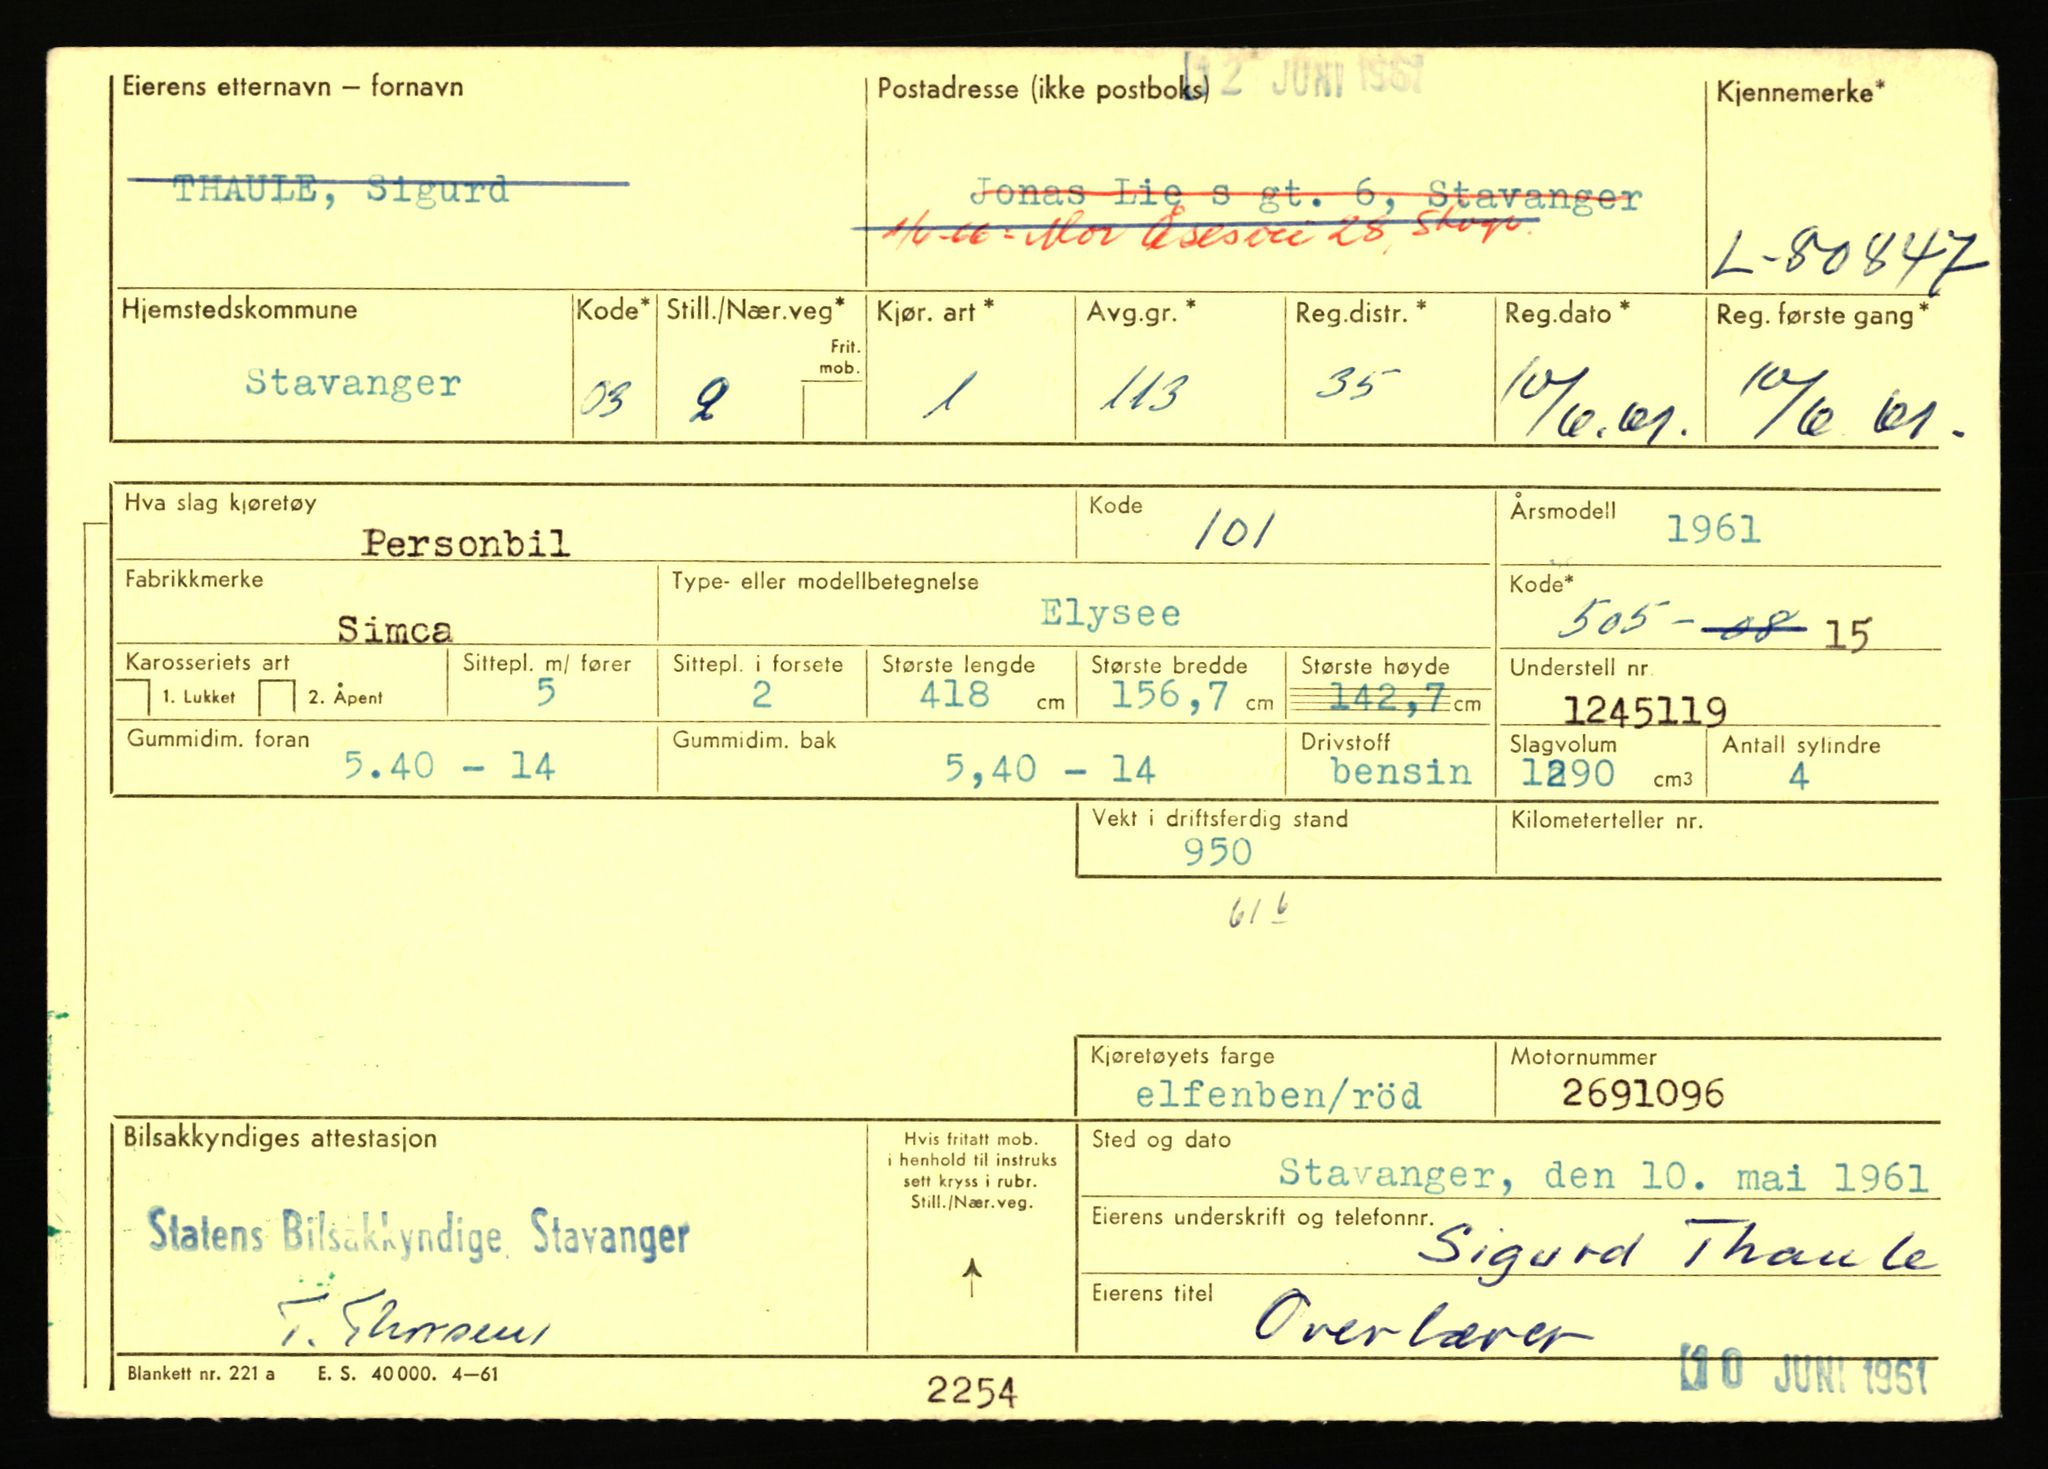 12 JUNI 1961
Eierens etternavn – fornavn
Postadresse (ikke postboks)
Kjennemerke*
THAULE, Sigurd
Jonas Lie s gt. 6, Stavanger
Mor Åsesvei 28, Stvgr.
L-80847
Hjemstedskommune
Kode*
Still./Nær.veg*
Frit. mob.
Kjør. art *
Avg.gr. *
Reg.distr. *
Reg.dato *
Reg. første gang *
Stavanger
03
2
1
113
35
10/6.61.
10/6 61.
Hva slag kjøretøy
Personbil
Kode
101
Årsmodell
1961
Fabrikkmerke
Simca
Type- eller modellbetegnelse
Elysee
Kode*
505 - 08 15
Karosseriets art
1. Lukket 2. Åpent
Sittepl. m/ fører
5
Sittepl. i forsete
2
Største lengde
418 cm
Største bredde
156,7 cm
Største høyde
142,7 cm
Understell nr.
1245119
Gummidim. foran
5.40 - 14
Gummidim. bak
5,40 - 14
Drivstoff
bensin
Slagvolum
1290 cm3
Antall sylindre
4
Vekt i driftsferdig stand
950
Kilometerteller nr.
61 6
Kjøretøyets farge
elfenben/röd
Motornummer
2691096
Bilsakkyndiges attestasjon
Statens Bilsakkyndige Stavanger
T. Thorsen
Hvis fritatt mob.
i henhold til instruks
sett kryss i rubr.
Still./Nær.veg.
Sted og dato
Stavanger, den 10. mai 1961
Eierens underskrift og telefonnr.
Sigurd Thaule
Eierens titel
Overlærer
Blankett nr. 221 a E. S. 40 000. 4–61
2254
10 JUNI 1961